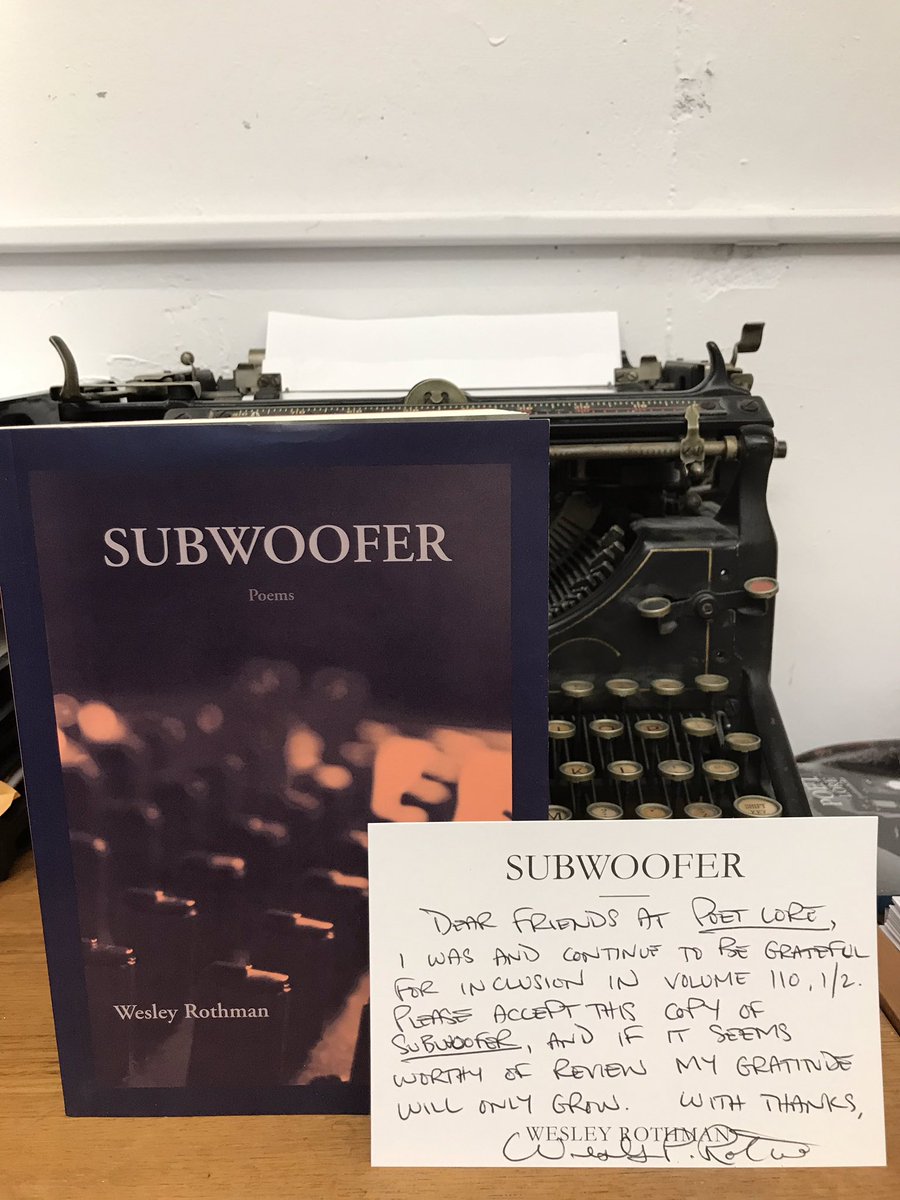 SUBWOOFER
Poems
Wesley Rothman
SUBWOOFER
DEAR FRIENDS AT POET LORE,
I WAS AND CONTINUE TO BE GRATEFUL
FOR INCLUSION IN VOLUME 110, 1/2.
PLEASE ACCEPT THIS COPY OF
SUBWOOFER, AND IF IT SEEMS
WORTHY OF REVIEW MY GRATITUDE
WILL ONLY GROW. WITH THANKS,
WESLEY ROTHMAN